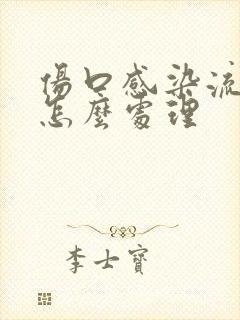 傷口感染流
怎麼處理
李士寶